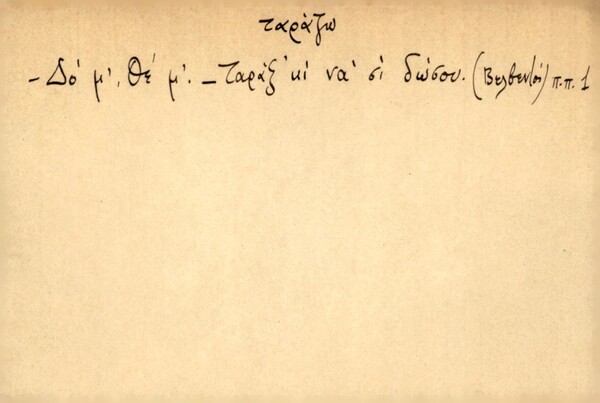 ταράζω
- Δό μ', Θέ μ'. – Ταράξ' κί νά σί δώσου. (Βελβεντό) π.π. 1